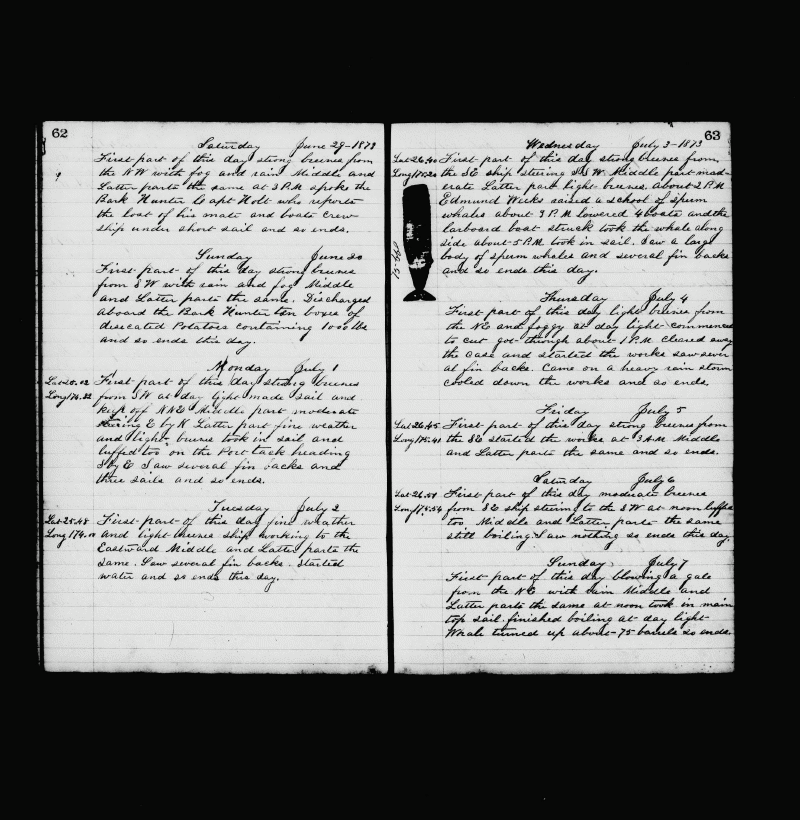 62
Saturday June 29-1873
First part of this day strong breezes from
the NW with fog and rain Middle and
Latter parts the same at 3 P.M spoke the
Bark Hunter Capt Holt who reports
the lost of his mate and boats Crew
ship under short sail and so ends.
Sunday June 30
First part of this day strong breezes
from SW with rain and fog Middle
and Latter parts the same. Discharged
aboard the Bark Hunter ten boxes of
desicated Potatoes containing 1000 lbs
and so ends this day.
Monday July 1
First part of this day strong breezes
from SW at day light made sail and
kept off NNE Middle part moderate
stering E by N Latter part fine weather
and light breezes took in sail and
luffed too on the Port tack heading
S by E Saw several fin backs and
three sails and so ends.
Tuesday July 2
Lat 25.48 First part of this day fine weather
Long 174. and light breezes ship working to the
Eastward Middle and Latter parts the
same. Saw several fin backs. Started
water and so ends this day.
63
Wednesday July 3-1873
Lat 26.40 First part of this day strong breezes from
the SE ship steering S.S.W. Middle part mod-
erate Latter part light breezes. About 2 P.M
Edmund Weeks raised a school of spum
whales about 3 P.M lowered 4 boats and the
larboard boat struck took the whale along
side about 5 P.M took in sail. Saw a large
body of spum whales and several fin backs
and so ends this day.
75 bbl
Thursday July 4
First part of this day light breezes from
the NE and foggy at day light commenced
to cut got through about 1 P.M cleared away
the case and started the works saw sever
al fin backs. Came on a heavy rain storm
cooled down the works and so ends.
Friday July 5
Lat 26.45 First part of this day strong breezes from
Long 175.41 the SE started the works at 3 A.M. Middle
and Latter parts the same and so ends.
Saturday July 6
Lat 26.51 First part of this day moderate breezes
Long 175.54 from SE ship stering to the SW at noon luffed
too Middle and Latter parts the same
still boiling Saw nothing so ends this day.
Sunday July 7
First part of this day blowing a gale
from the NE with rain Middle and
Latter parts the same at noon took in main
top sail. finished boiling at day light
Whale turned up about 75 barrels so ends.